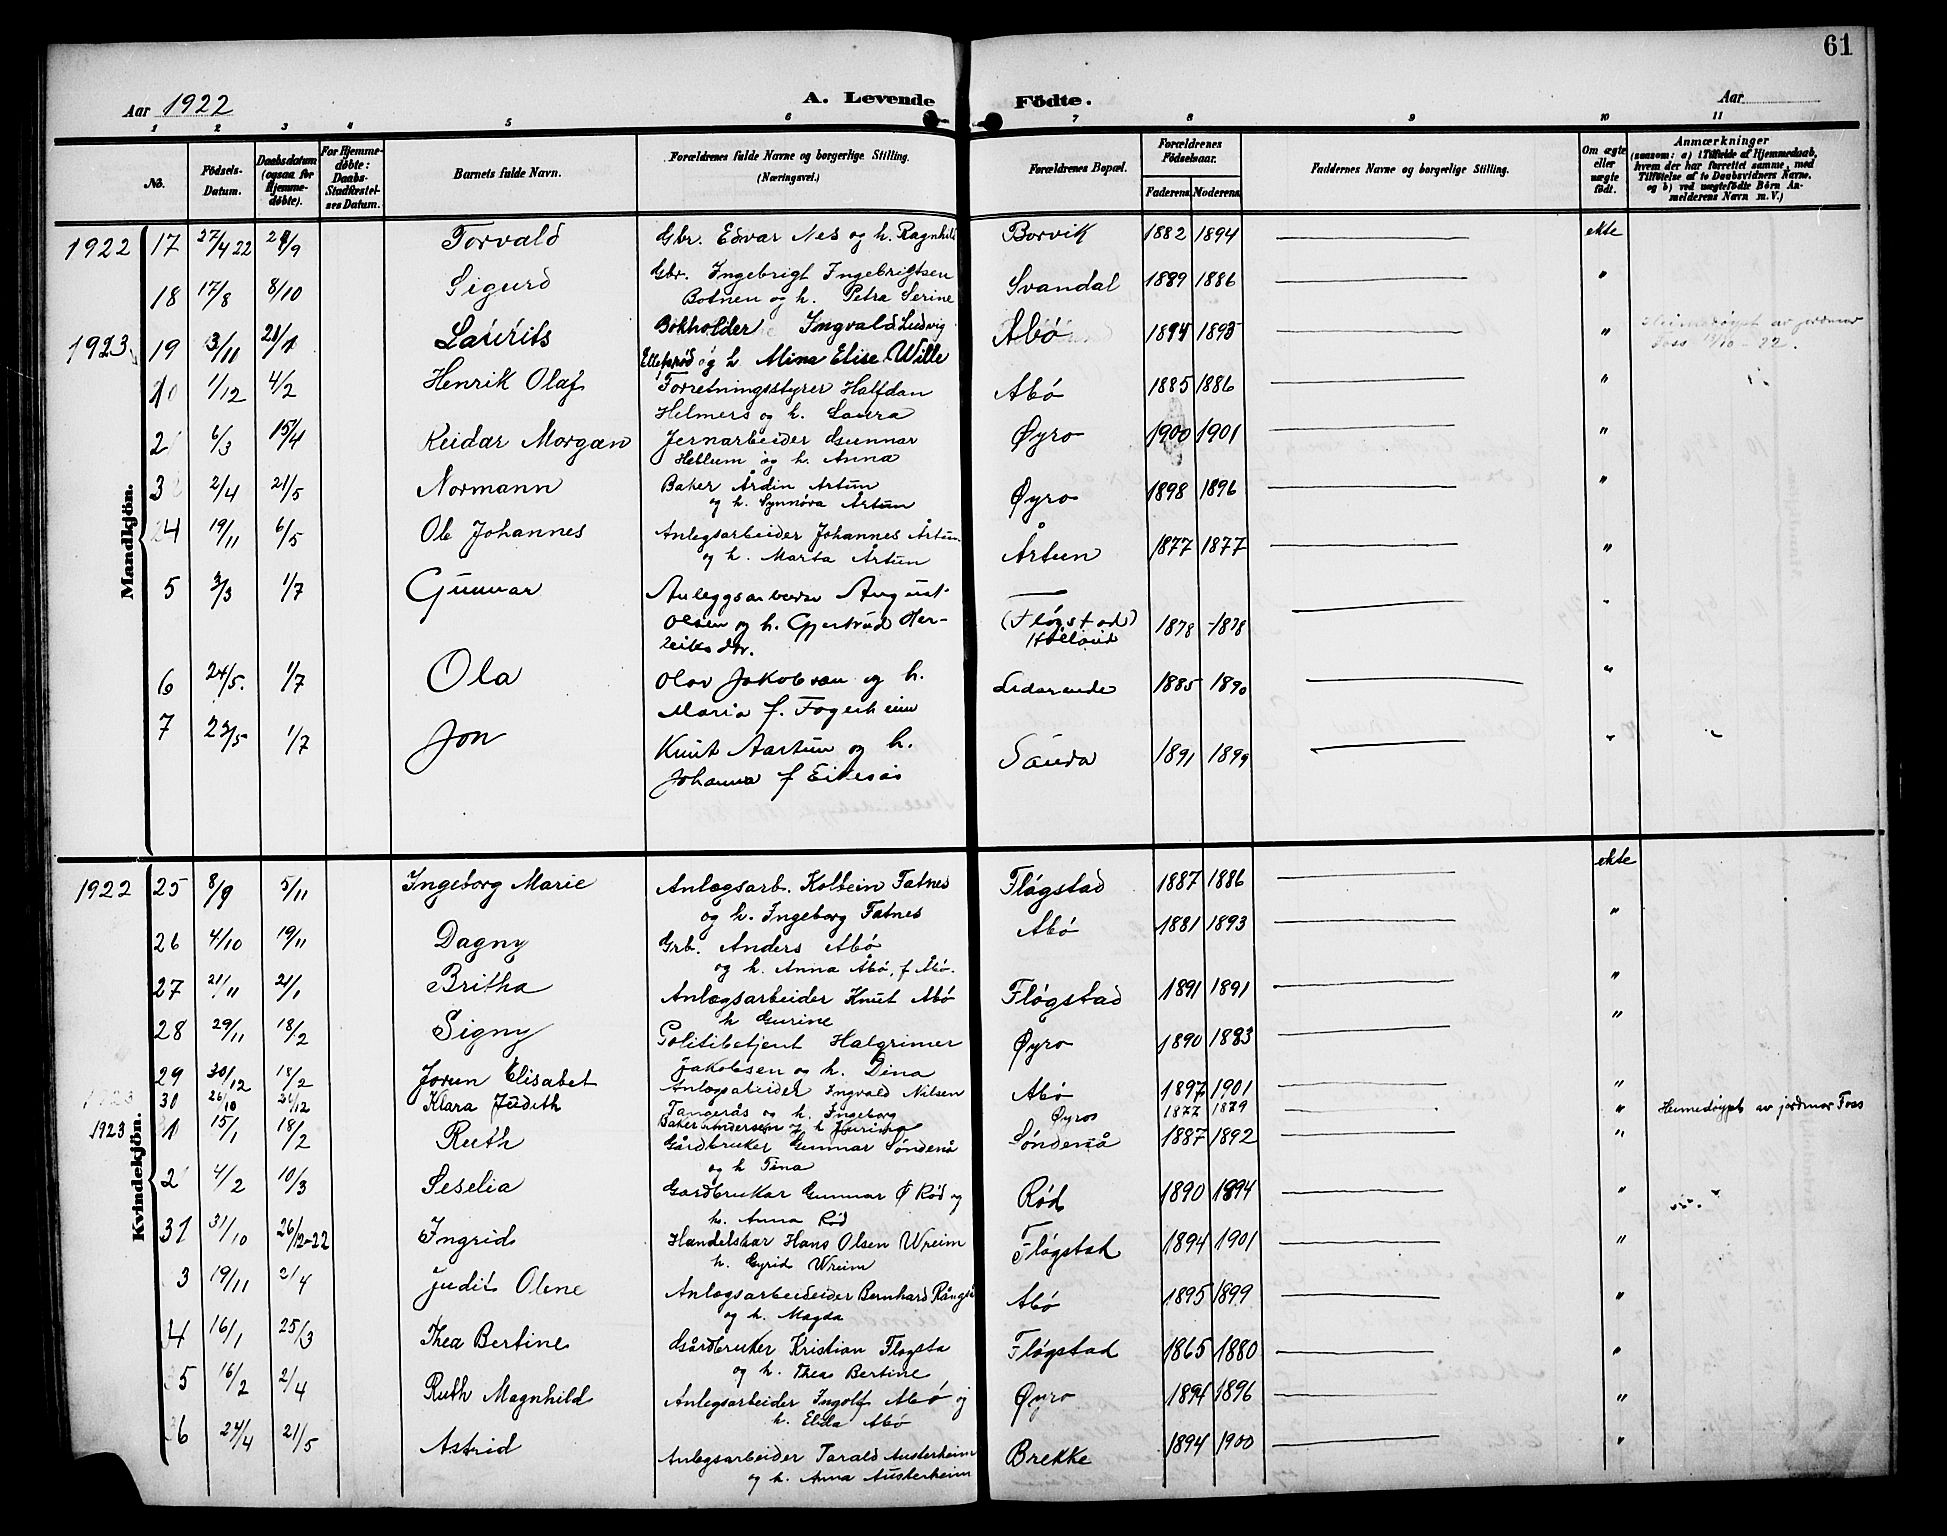 61
Aar 1922
A. Levende
Födte.
Aar
1 2 3 4 5 6 7 8 9 10 11
No.
Födsels-Datum.
Daabsdatum (ogsaa for Hjemmedøbte).
For Hjemmedøbte: Daabs-Stadfæstelses Datum.
Barnets fulde Navn.
Forældrenes fulde Navne og borgerlige Stilling. (Næringsvei.)
Forældrenes Bopæl.
Forældrenes Födselsaar.
Faderens. Moderens.
Faddernes Navne og borgerlige Stilling.
Om ægte eller uægte födt.
Anmærkninger
(saasom: a) i Tilfælde af Hjemmedaab, hvem der har forrettet samme, med Tilföielse af to Daabsvidners Navne, og b) ved uægtefödte Börn Anmelderens Navn m. V.)
Mandkjön.
1922 17 27/4 22 24/9 Torvald Gbr. Edvar Nes og h. Ragnhild Borvik 1882 1894 ekte
18 17/8 8/10 Sigurd Gbr. Ingebrigt Ingebrigtsen
Botnen og h. Petra Serine Svandal 1889 1886 "
1923 19 3/11 21/1 Laurits Bokholder Ingvald Ludvig
og h. Mina Elise Wille Abø 1894 1893 " Heimedøypt av jordmor
Foss 13/10 - 22.
10 1/12 4/2 Henrik Olaf Forretningsstyrer Halfdan
Helmers og h. Laura Abø 1885 1886 "
2 6/3 15/4 Reidar Morgan Jernarbeider Gunnar
Hellum og h. Anna Øyro 1900 1901 "
3 2/4 21/5 Normann Baker Årdin Årtun
og h. Synnøva Årtun Øyro 1898 1896 "
4 19/11 6/5 Ole Johannes Anlegsarbeider Johannes Årtun
og h. Marta Årtun Årtun 1877 1877 "
5 3/3 1/7 Gunnar August
Olsen og h. Gjertrud Her-
leiksdr. (Fløgstad)
1878 - 1878 "
6 24/5. 1/7 Ola Olav Jakobsen og h.
Maria f. Fagerheim 1885 1890 "
7 23/5 1/7 Jon Knut Aartun og h.
Johanna f Eikesås Sanda 1891 1899 "
Kvindekjön.
1922 25 8/9 5/11 Ingeborg Marie Anlægsarb. Kolbein Fatnes
og h. Ingeborg Fatnes Fløgstad 1887 1886 ekte
26 4/10 19/11 Dagny Grb. Anders Abø
og h. Anna Åbø, f Åbø. Abø 1881 1893 "
27 21/11 21/1 Britha Anlægsarbeider Knut Abø
h Gurine Fløgstad 1891 1891 "
28 29/11 18/2 Signy Politibetjent Halgrimer
Jakobsen og h. Dina Øyro 1890 1883 "
29 30/12 18/2 Jorun Elisabet Anlægsabeider Ingvald Nilsen
Tangerås og h. Ingeborg Abø 1897 1901 "
30 26/10 26/12 Klara Judith Baker Andersen og h Jurina Øyro 1877 1879 " Heimedøypt av jordmor Foss
1923 1 15/1 18/2 Ruth Gårdbruker Gunnar Søndenå
og h Tina Søndenå 1887 1892 "
2 4/2 10/3 Seselia Gardbrukar Gunnar Ø Rød og
h. Anna Rød Rød 1890 1894 "
31 31/10 26/12-22 Ingrid Handelskar Hans Olsen Wreim
h. Gyrid Wreim Fløgstad 1894 1901 "
3 19/11 2/4 Judit Olene Anlægsarbeideider Bernhard
og h. Magda Abø 1895 1899 "
4 16/1 25/3 Thea Bertine Gårdbruker Kristian Fløgsta
og h. Thea Bertine Fløgstad 1865 1880 "
5 16/2 2/4 Ruth Magnhild Anlegsarbeider Ingolf Abø og
h. Elida Abø Øyro 1894 1896 "
6 24/4 21/5 Astrid Anlegsarbeider Tarald Austerheim
og h. Anna Austerheim Brekke 1894 1900 "